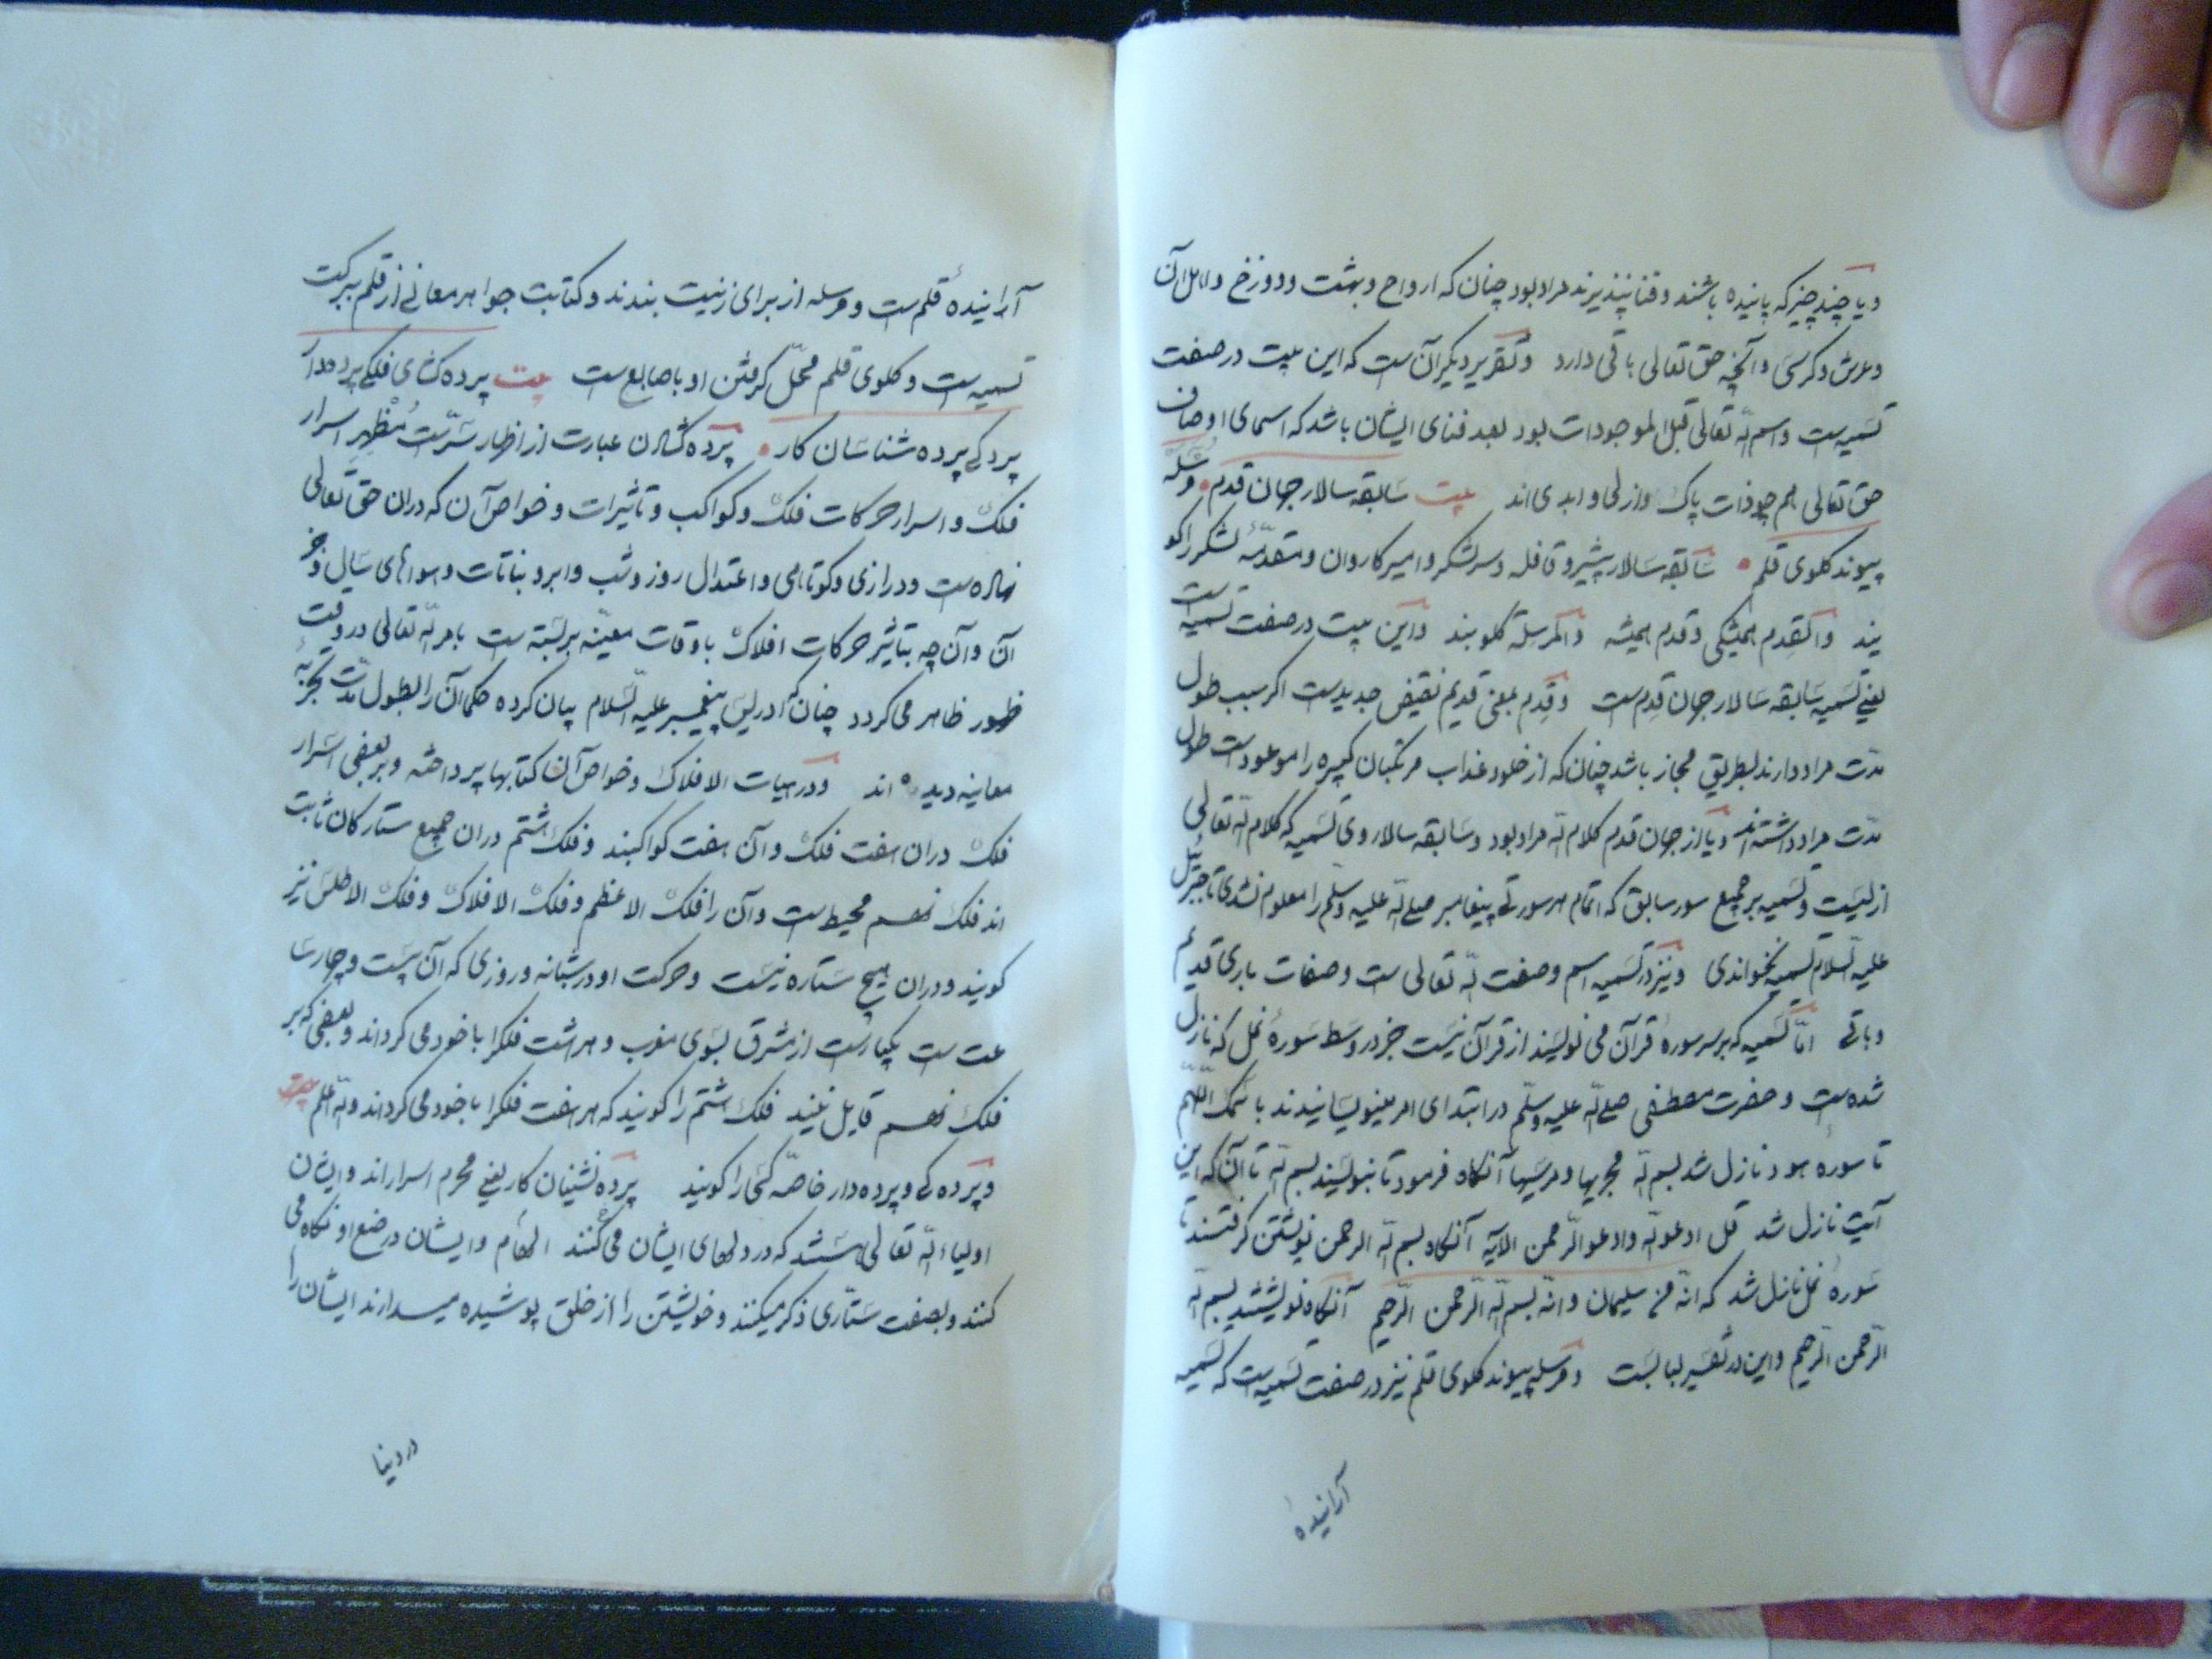 ویا چند چیز که پاینده باشند و فنا نپذیرند مراد بود چنان که ارواح و بهشت و دوزخ و اهل آن
و عرش و کرسی و آنچه حق تعالی باقی دارد و تقریر دیگر آن ست که این بیت در صفت
تسمیه ست و اسم الله تعالی قبل الموجودات بود بعد فنای ایشان باشد که اسمای اوصاف
حق تعالی هم چو ذات پاک و ازلی و ابدی اند بیت سابقه سالار جهان قدم • مرسله
پیوند کلوی قلم • سابقه سالار پیشرو قافله و سر لشکر و امیر کاروان و متقدمهٔ لشکر را کو
یند والقدم همیشکی و قدم همیشه والمرسلة کلو بند و این بیت در صفت تسمیه است
یعنی تسمیه سابقه سالار جهان قدم ست و قدم بمعنی قدیم نقیض جدید ست اکر سبب طول
مدت مراد دارند بطریق مجاز باشد چنان که از خلود عذاب مرتکبان کبیره را موعود است طول
مدت مراد داشته اند و یا از جهان قدم کلام الله مراد بود و سابقه سالار وی تسمیه که کلام الله تعالی
ازلیست و تسمیه بر جمیع سور سابق که اتمام هر سورتی پیغامبر صلی الله علیه وسلم را معلوم نشدی تا جبرئیل
علیه السلام تسمیه نخواندی و نیز در تسمیه اسم و صفت الله تعالی ست و صفات باری قدیم
و باقی اما تسمیه که بر سر سورهٔ قرآن می نویسند از قرآن نیست جز در وسط سورهٔ نمل که نازل
شده ست و حضرت مصطفی صلی الله علیه وسلم در ابتدای امر می‌نویسانیدند باسمک اللهم
تا سوره هود نازل شد بسم الله مجریها و مرسیها آنکاه فرمود تا بنویسند بسم الله تا آن که این
آیت نازل شد قل ادعوا الله و ادعوا الرحمن الآیه آنکاه بسم الله الرحمن نوشتن کرفتند تا
سورهٔ نمل نازل شد که انه من سلیمان و انه بسم الله الرحمن الرحیم آنکاه نوشتند بسم الله
الرحمن الرحیم و این در تفسیر لبابست و مرسله پیوند کلوی قلم نیز در صفت تسمیه ست که تسمیه
آرانیدهٔ
آرانیدهٔ قلم ست و مرسله از برای زینت بندند و کتابت جواهر معانی از قلم ببرکت
تسمیه ست و کلوی قلم محل کرفتن او باصابع ست بیت پرده کشای فلک پرده دار
پردکی پرده شناسان کار • پرده کشادن عبارت از اظهار سرّست مظهر اسرار
فلک و اسرار حرکات فلک و کواکب و تاثیرات و خواص آن که دران حق تعالی
نهاده ست و درازی و کوتاهی و اعتدال روز و شب و ابر و نباتات و هواهای سال و جز
آن و آن چه بتاثیر حرکات افلاک باوقات معینه بر بسته ست بامر الله تعالی در وقت
ظهور ظاهر می کردد چنان که ادریس پیغمبر علیه السلام بیان کرده حکما آن را بطول مدت تجربهٔ
معاینه دیده اند و در هیات الافلاک و خواص آن کتابها پرداخته و بر بعضی اسرار
فلک دران هفت فلک و آن هفت کواکبند و فلک هشتم دران جمیع ستارکان ثابت
اند فلک نهم محیط ست و آن را فلک الاعظم و فلک الافلاک و فلک الاطلس نیز
کویند و دران هیچ ستاره نیست و حرکت او در شبانه و روزی که آن بیست و چار سا
عت ست یکبارست از مشرق بسوی مغرب و هر هشت فلک را با خود می کرداند و بعضی که بر
فلک نهم قایل نیند فلک هشتم را کویند که هر هفت فلک را با خود می کرداند والله اعلم
و پرده کی و پرده دار خاصّه کی را کویند پرده نشینان کار یعنی محرم اسرار اند و ایشان
اولیاء الله تعالی باشند که در دلهای ایشان می کنند الهام و ایشان در صنع او نکاه می
کنند و بصفت ستّاری ذکر میکنند و خویشتن را از خلق پوشیده میدارند ایشان را
در دنیا